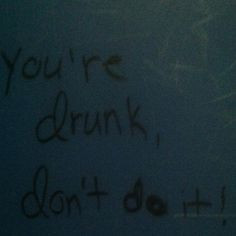 You're
drunk,
don't do it!